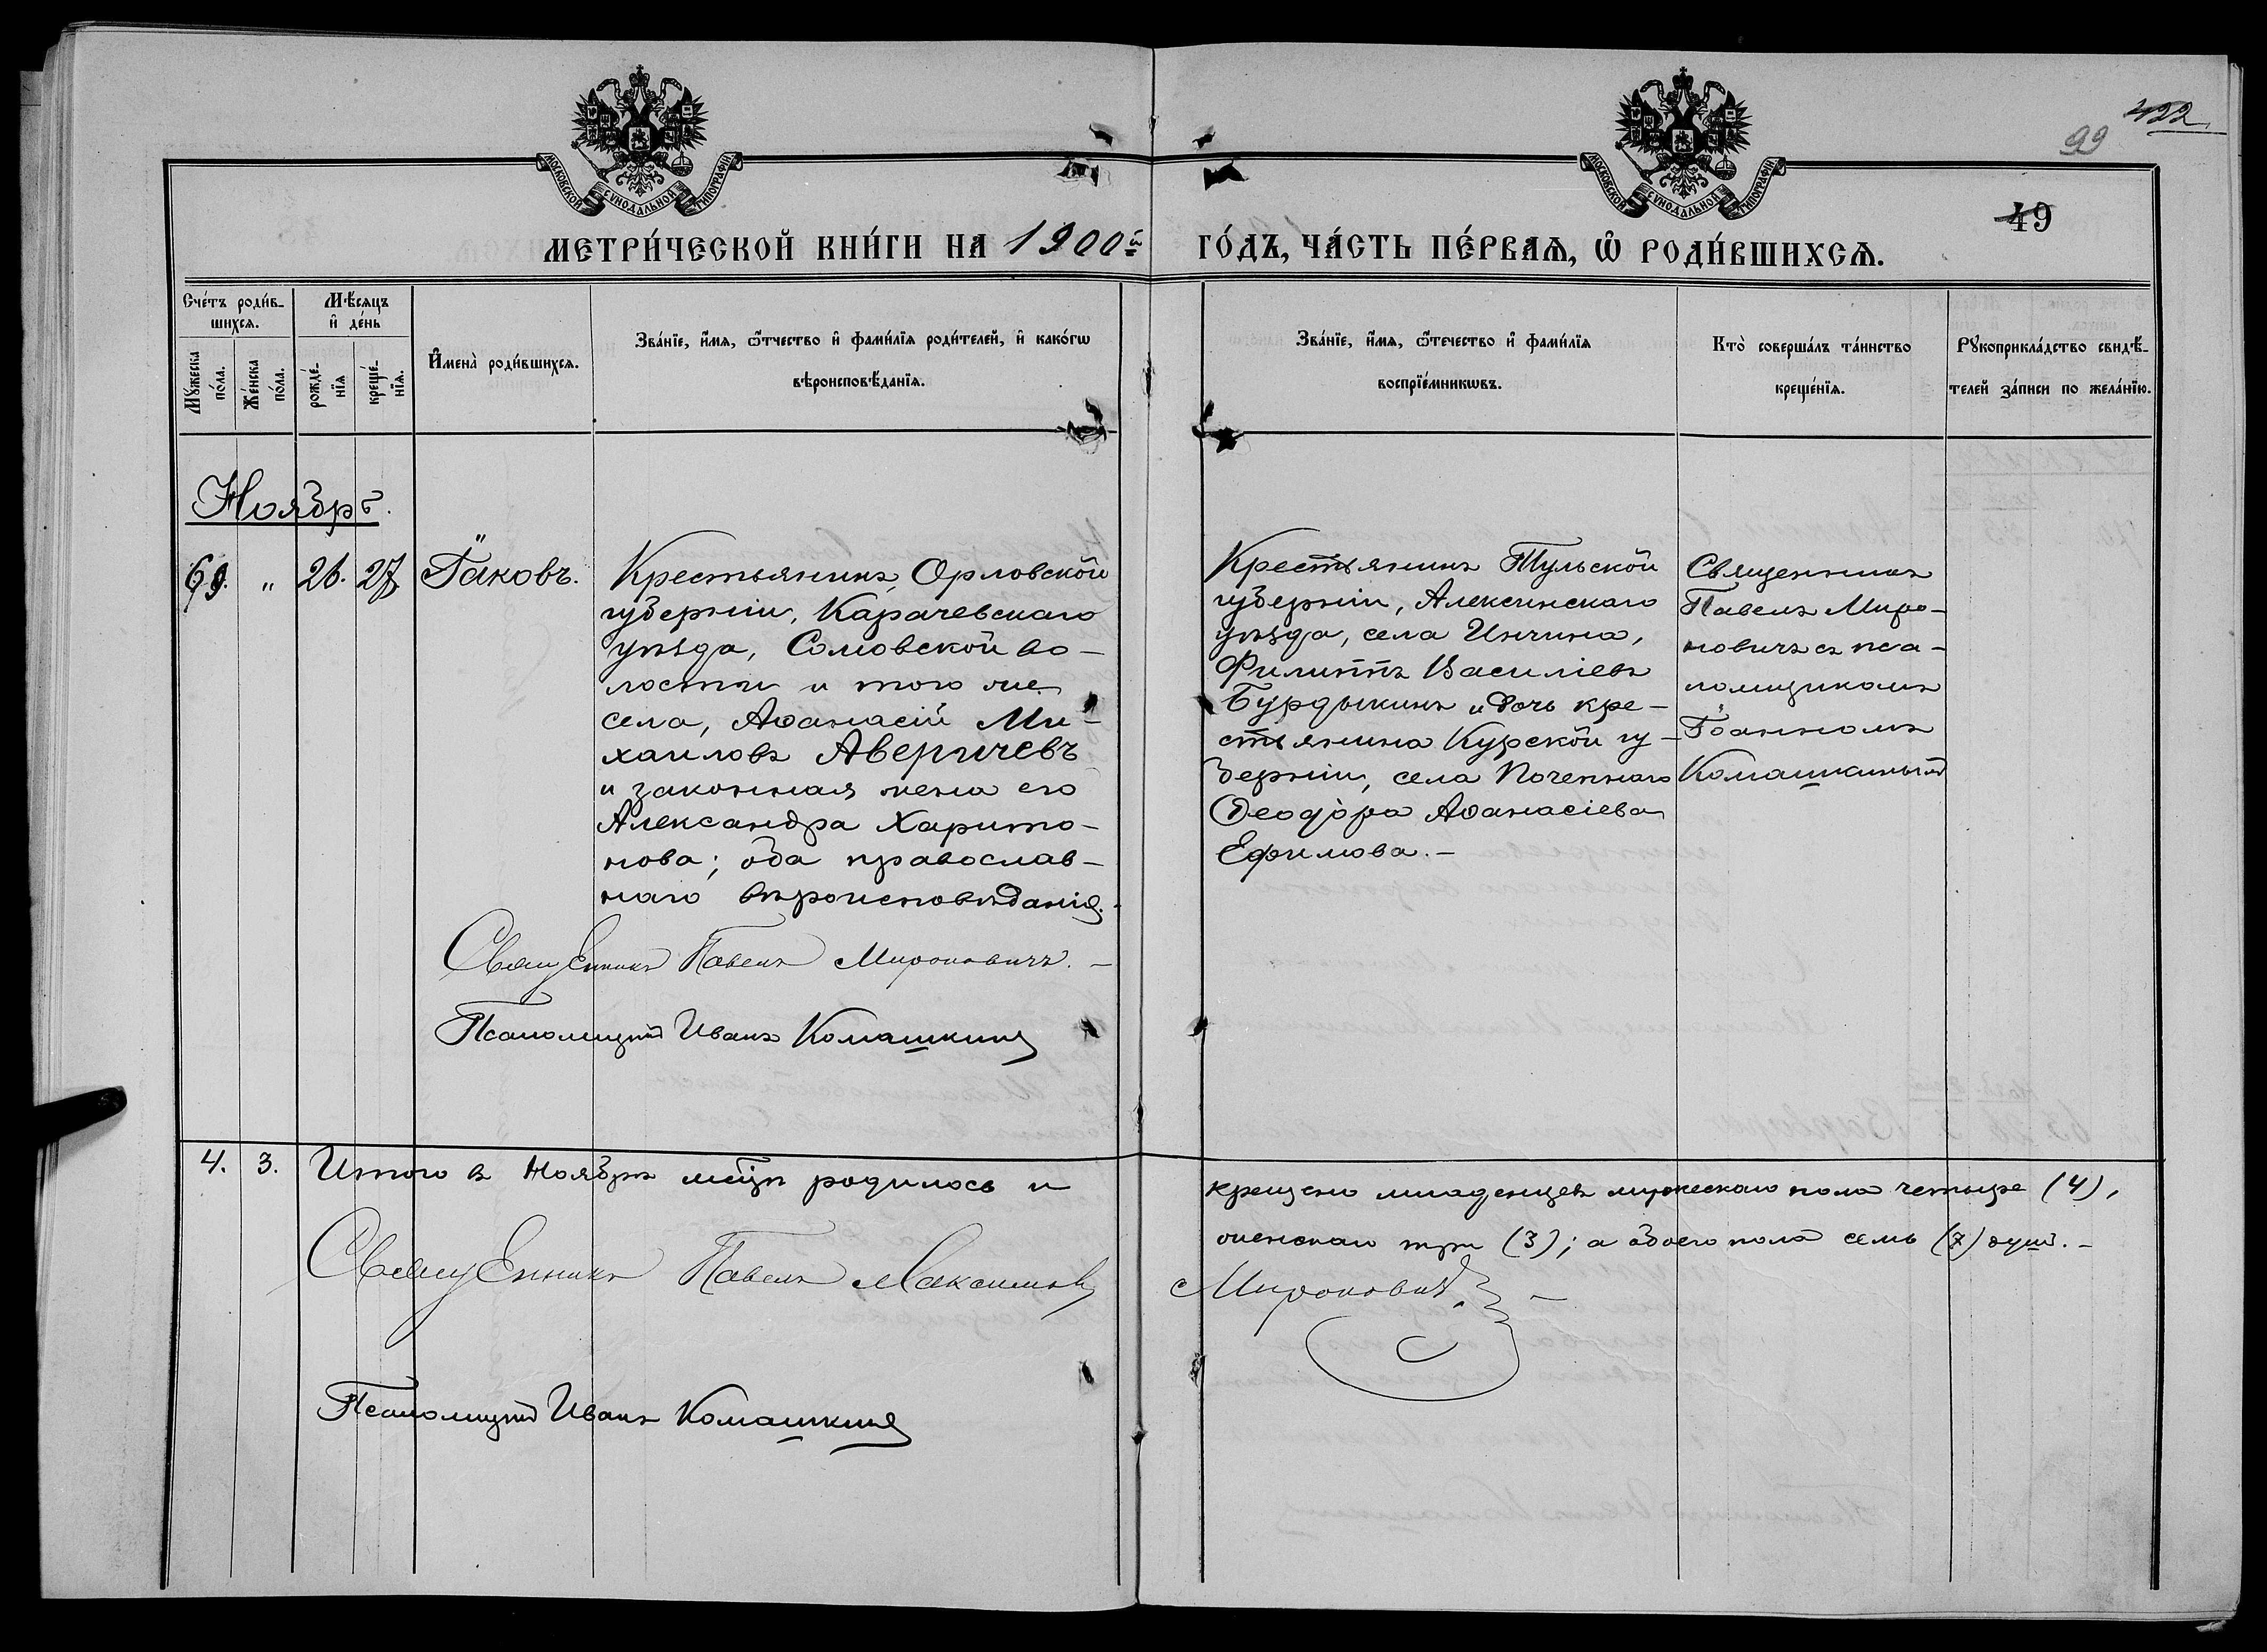 422
99
49
МОСКОВСКОЙ СѴНОДАЛЬНОЙ ТИПОГРАФІИ
МОСКОВСКОЙ СѴНОДАЛЬНОЙ ТИПОГРАФІИ
МЕТРИ́ЧЕСКОЙ КНИ́ГИ НА 1900й ГО́ДЪ, ЧА́СТЬ ПЕ́РВАѦ, Ѡ҆ РОДИ́ВШИХСѦ.
Сче́тъ роди́в-
шихсѧ.
Мꙋ́жеска по́ла.
Же́нска по́ла.
Мѣ́сѧцъ
и҆ де́нь
рожде́-
нїѧ
креще́-
нїѧ.
И҆мена̀ роди́вшихсѧ.
Зва́нїе, и҆́мѧ, ѻ҆́тчество и҆ фами́лїѧ роди́телей, и҆ како́гѡ
вѣроисповѣ́данїѧ.
Зва́нїе, и҆́мѧ, ѻ҆те́чество и҆ фами́лїѧ
воспрїе́мникѡвъ.
Кто̀ соверша́лъ та́инство
креще́нїѧ.
Рꙋкоприкла́дство свидѣ́-
телей за́писи по жела́нїю.
Ноябрь.
69. " 26. 27 Іаковъ.
Крестьянинъ Орловской
губерніи, Карачевскаго
уѣзда, Сомовской во-
лости и того же
села, Аѳанасій Ми-
хаиловъ Аверичевъ
и законная жена его
Александра Харито-
нова; оба православ-
наго вѣроисповѣданія.
Крестьянинъ Тульской
губерніи, Алексинскаго
уѣзда, села Инчина,
Филиппъ Василіевъ
Бурдыкинъ и дочь кре-
стьянина Курской гу-
берніи, села Поченнаго
Ѳеодора Аѳанасіева
Ефимова.-
Священникъ
Павелъ Миро-
новичъ съ пса-
ломщикомъ
Іоанномъ
Комашкинымъ
Священникъ Павелъ Мироновичъ.-
Псаломщикъ Иванъ Комашкинъ
4. 3. Итого въ Ноябрѣ мѣсцѣ родилось и крещено младенцевъ мужескаго пола четыре (4),
женскаго три (3); а обоего пола семь (7) душъ.-
Священникъ Павелъ Максимовъ Мироновичъ.-
Псаломщикъ Иванъ Комашкинъ